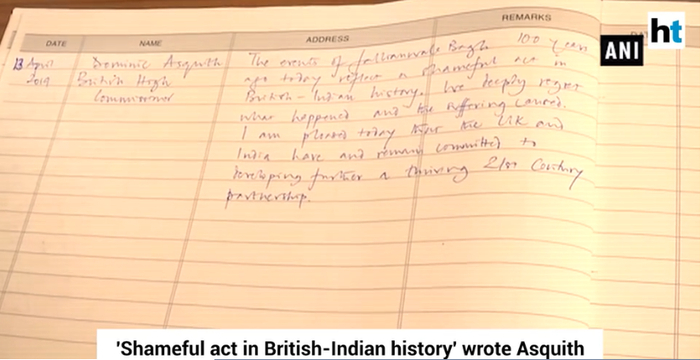 ht
ANI
DATE NAME ADDRESS REMARKS
13 April Dominic Asquith The events of Jallianwala Bagh 100 years
2019 British High ago today reflect a shameful act in
Commissioner British-Indian history. We deeply regret
what happened and the suffering caused.
I am pleased today that the UK and
India have and remain committed to
developing further a thriving 21st Century
partnership.
'Shameful act in British-Indian history' wrote Asquith